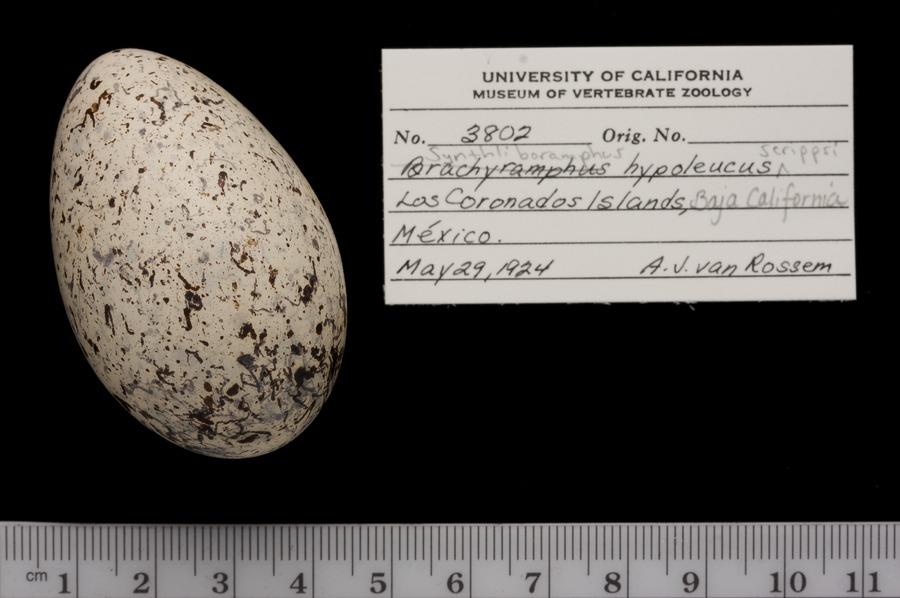 UNIVERSITY OF CALIFORNIA
MUSEUM OF VERTEBRATE ZOOLOGY
No. 3802 Orig. No.
Synthliboramphus scrippsi
Brachyramphus hypoleucus ^
Los Coronados Islands, Baja California
México.
May 29, 1924 A.J. van Rossem
cm 1 2 3 4 5 6 7 8 9 10 11